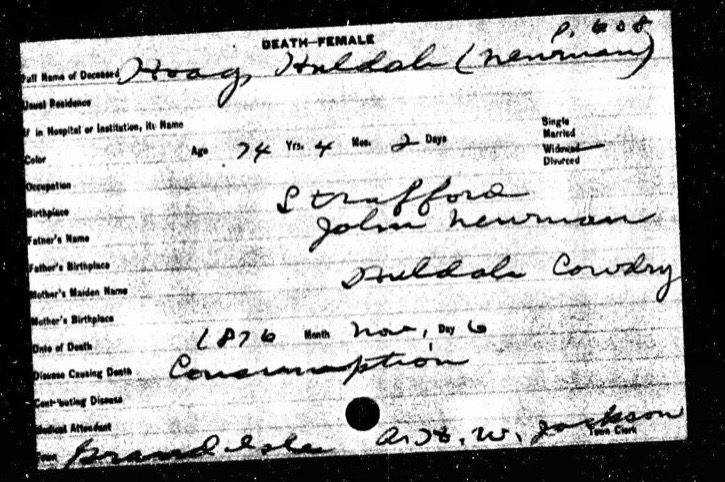 P. 608
DEATH—FEMALE
Full Name of Deceased Hoag, Huldah (Newman)
Usual Residence
If in Hospital or Institution, its Name
Color Age 74 Yrs. 4 Mos. 2 Days
Single
Married
Widowed
Divorced
Occupation
Birthplace Strafford
Father's Name John Newman
Father's Birthplace
Mother's Maiden Name Huldah Cowdry
Mother's Birthplace
Date of Death 1876 Month Nov, Day 6
Disease Causing Death Consumption
Contributing Disease
Medical Attendant
Town Grand Isle W. Jackson Town Clerk